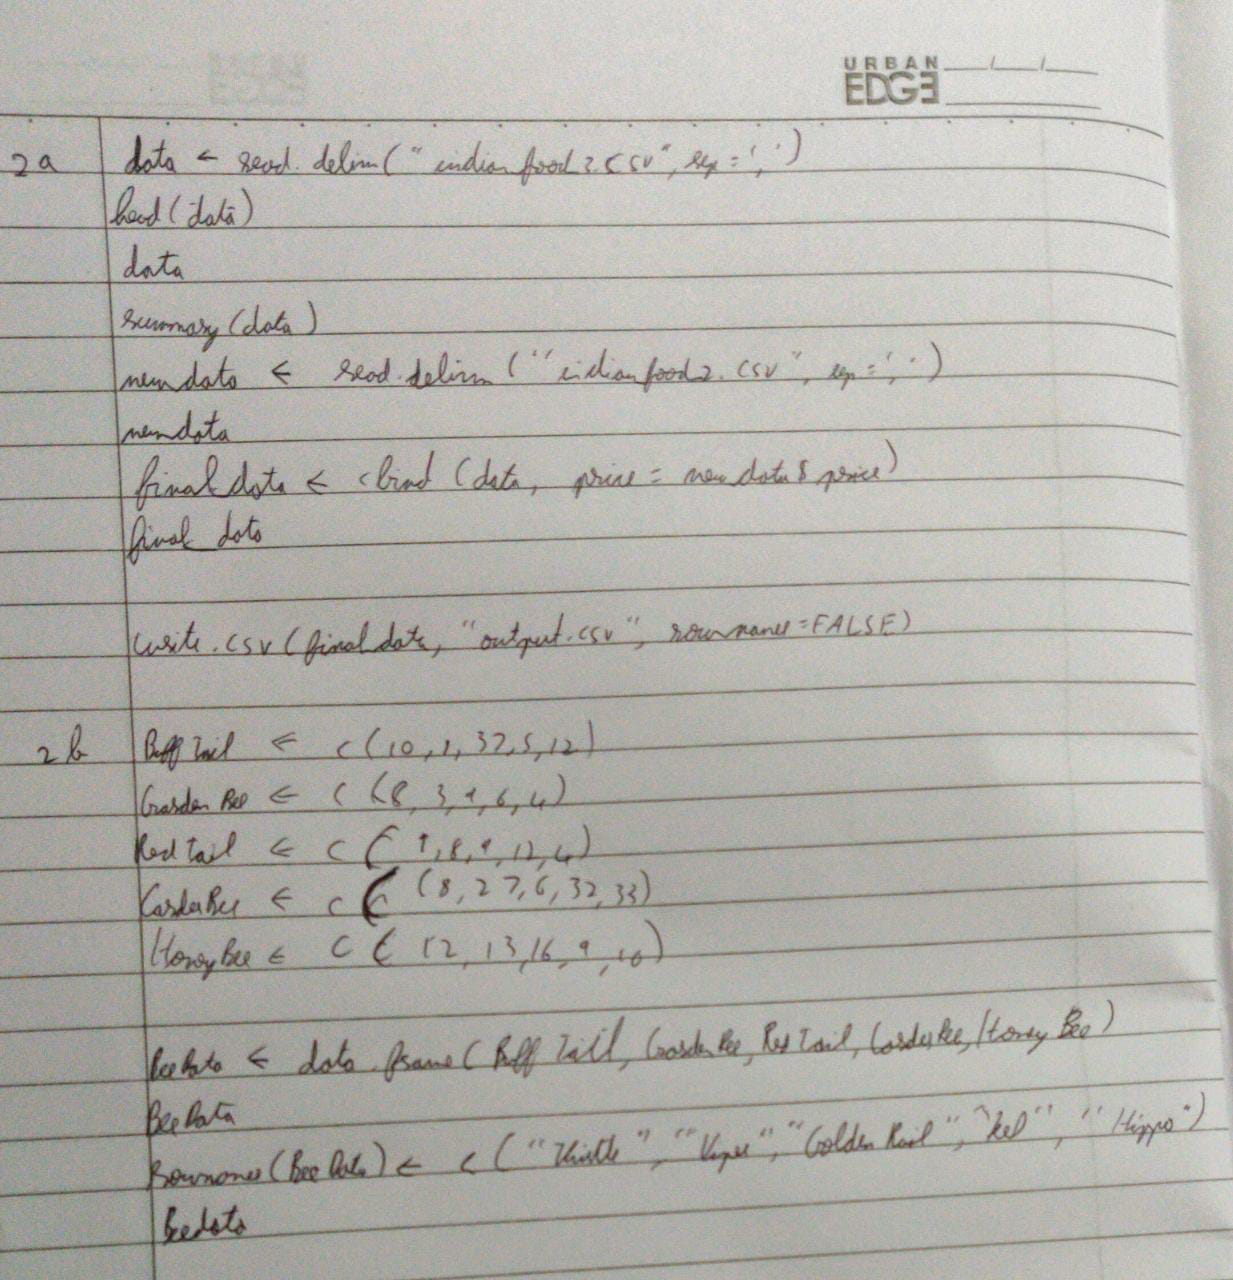 URBAN
EDGE
2a data ← read.delim("indianfood2.csv", sep=',')
head(data)
data
summary(data)
newdata ← read.delim("indianfood2.csv", sep=',')
newdata
finaldata ← cbind (data, price = newdata$price)
finaldata
write.csv(finaldata, "output.csv", rownames=FALSE)
2b BuffTail ← c(10,1,37,5,12)
GardenBee ← c(8, 3, 9, 6, 4)
RedTail ← c( 9,8,9,12,4)
CarderBee ← c( (8, 27, 6, 32, 33)
HoneyBee ← c( 12, 13, 16, 9, 10)
BeeData ← data.frame(BuffTail, GardenBee, RedTail, CarderBee, HoneyBee)
BeeData
rownames(BeeData) ← c("Thistle", "Viper", "Golden Rail", "Hippo")
Beedata